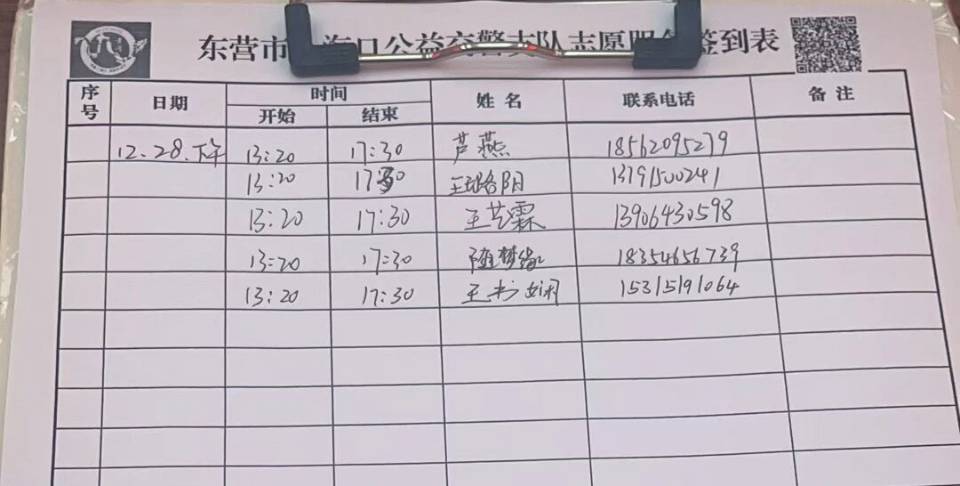 东营市 海口公益交警支队志愿服务签到表
序号 日期 时间 姓名 联系电话 备注
开始 结束
12.28.下午 13:20 17:30 芦燕 18562095279
13:20 17:30 阳 13791500241
13:20 17:30 王艺霖 13906430598
13:20 17:30 随梦缘 18354656739
13:20 17:30 王书娴 15315191064